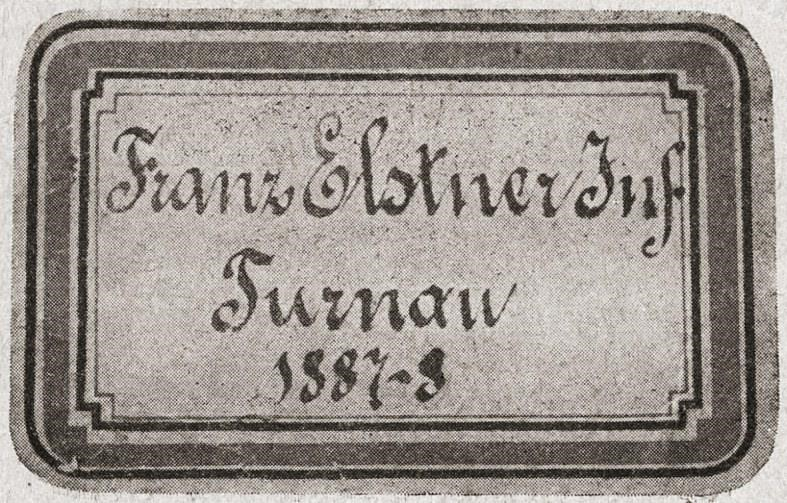 Franz Elstner Juf
Turnau
1887-8